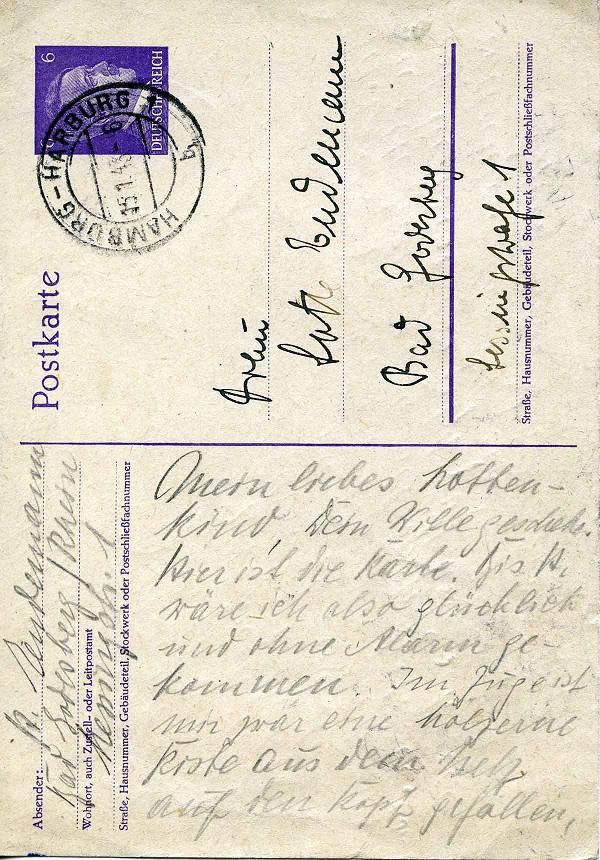 6
DEUTSCHES REICH
HAMBURG-HARBURG 1
15.1.43-6
b
HAMBURG
Postkarte
Frau
Lotte Endemann
Bad Godesberg
Lessingstraße 1
Straße, Hausnummer, Gebäudeteil, Stockwerk oder Postschließfachnummer
Absender:
Endemann
Bad Godesberg / Rhein
Wohnort, auch Zustell- oder Leitpostamt
Lessingstr. 1
Straße, Hausnummer, Gebäudeteil, Stockwerk oder Postschließfachnummer
Mein liebes Lotten-
kind, Dein Wille geschehe.
Hier ist die Karte. Bis H.
wäre ich also glücklich
und ohne Alarm ge-
kommen. Im Zuge ist
mir zwar eine hölzerne
Kiste aus dem
auf den Kopf gefallen,